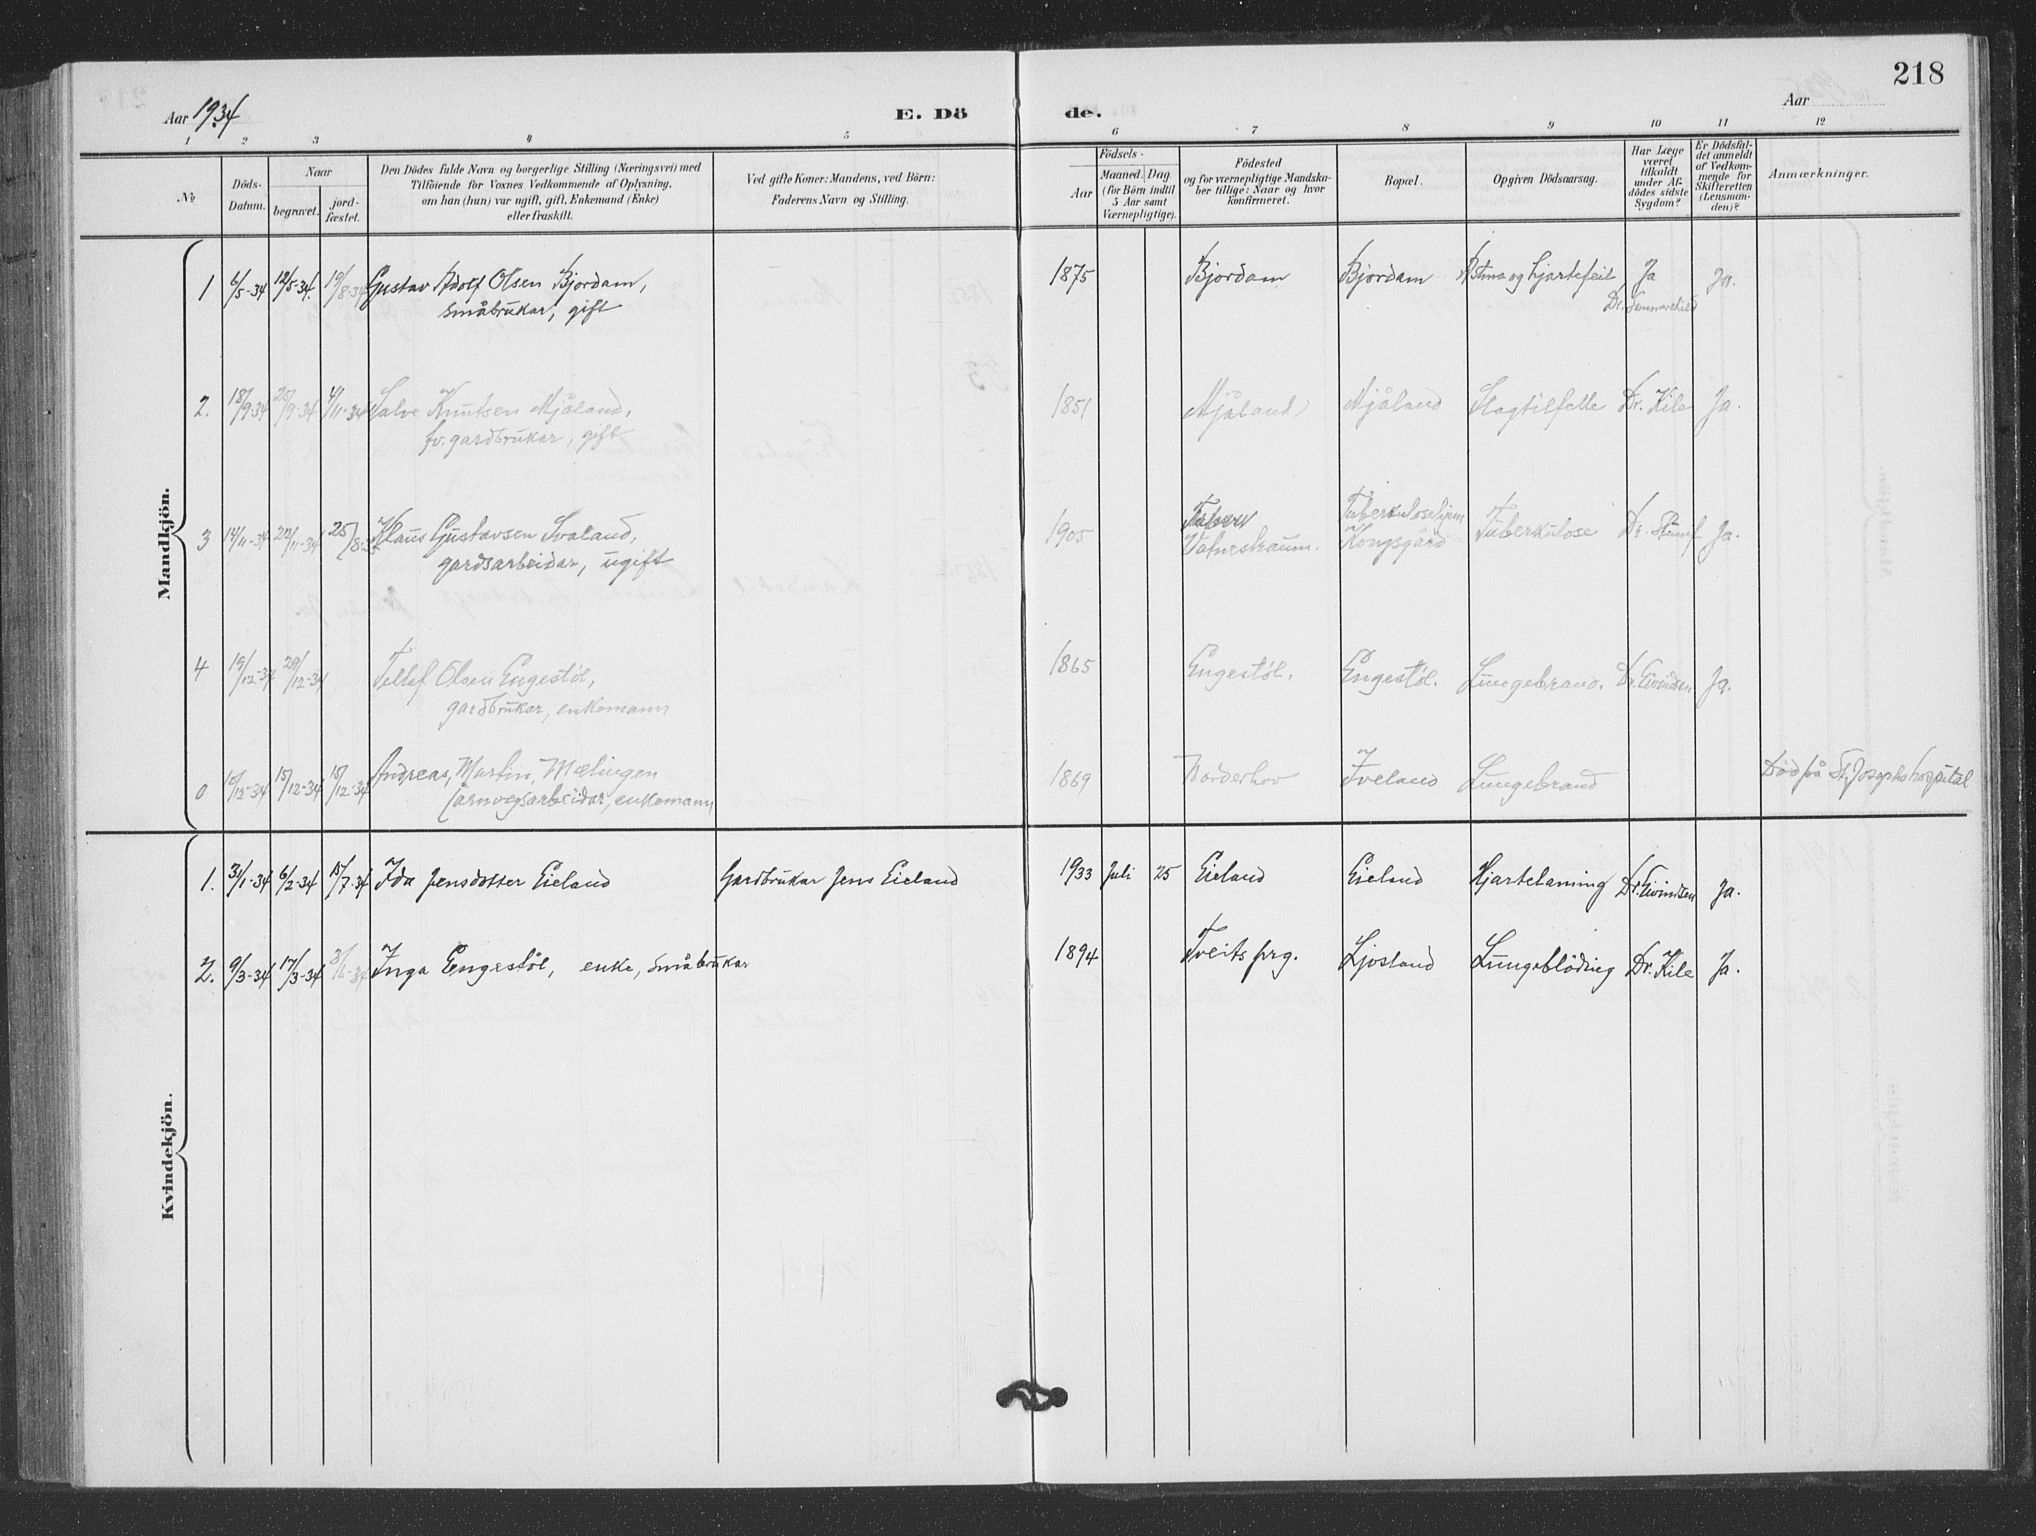 218
Aar 1934
E. Dö
de.
Aar
1 2 3 4 5 6 7 8 9 10 11 12
No
Döds-
Datum.
Naar
begravet.
jord-
fæstet.
Den Dödes fulde Navn og borgerlige Stilling (Næringsvei) med
Tilföiende for Voxnes Vedkommende af Oplysning,
om han (hun) var ugift, gift, Enkemand (Enke)
eller fraskilt.
Ved gifte Koner: Mandens, ved Börn:
Faderens Navn og Stilling.
Födsels-
Aar
Maaned. Dag.
(for Börn indtil
5 Aar samt
Værnepligtige).
Födested
og for værnepligtige Mandska-
ber tillige: Naar og hvor
konfirmeret.
Bopæl.
Opgiven Dödsaarsag.
Har Læge
været
tilkaldt
under Af-
dödes sidste
Sygdom?
Er Dödsfal-
det anmeldt
af Vedkom-
mende for
Skifteretten
(Lensman-
den)?
Anmærkninger.
Mandkjön.
1 6/5-34 12/5-34. 19/8-34 Gustav Adolf Olsen Bjordam, 1875 Bjordam Bjordam Astma og hjartefeil Ja Ja.
småbrukar, gift Dr.
2. 18/9-34 25/9-34 4/11-34 Salve Knutsen Mjåland, 1851 Mjåland Mjåland Slagtilfelle Dr. Kile Ja.
fv. gardbrukar, gift
3 14/11-34 20/11-34 25/8- Klaus Gustavsen Svaland, 1905 Vatnestraum. Tuberkulosehjem Kongsgård Tuberkulose Dr. Stumf Ja.
gardsarbeidar, ugift
4 19/12-34 29/12-34 Tellef Olsen Engestöl, 1865 Engestöl. Engestöl. Lungebrand. Dr. Eivindsen Ja.
gardbrukar, enkemann
0 10/12-34 15/12-34 15/12-34 Andreas, Martin, Mælingen 1869 Norderhov Iveland Lungebrand Död på St. Josephs hospital
jarnvegsarbeidar, enkemann
Kvindekjön.
1. 31/1-34 6/2-34 15/7-34 Ida Jensdotter Eieland Gardbrukar Jens Eieland 1933 Juli 25 Eieland Eieland Hjartelaming Dr. Eivindsen Ja.
2. 9/3-34 17/3-34 Inga Engestöl, enke, småbrukar 1894 Tveits prg. Ljosland Lungeblöding Dr. Kile Ja.